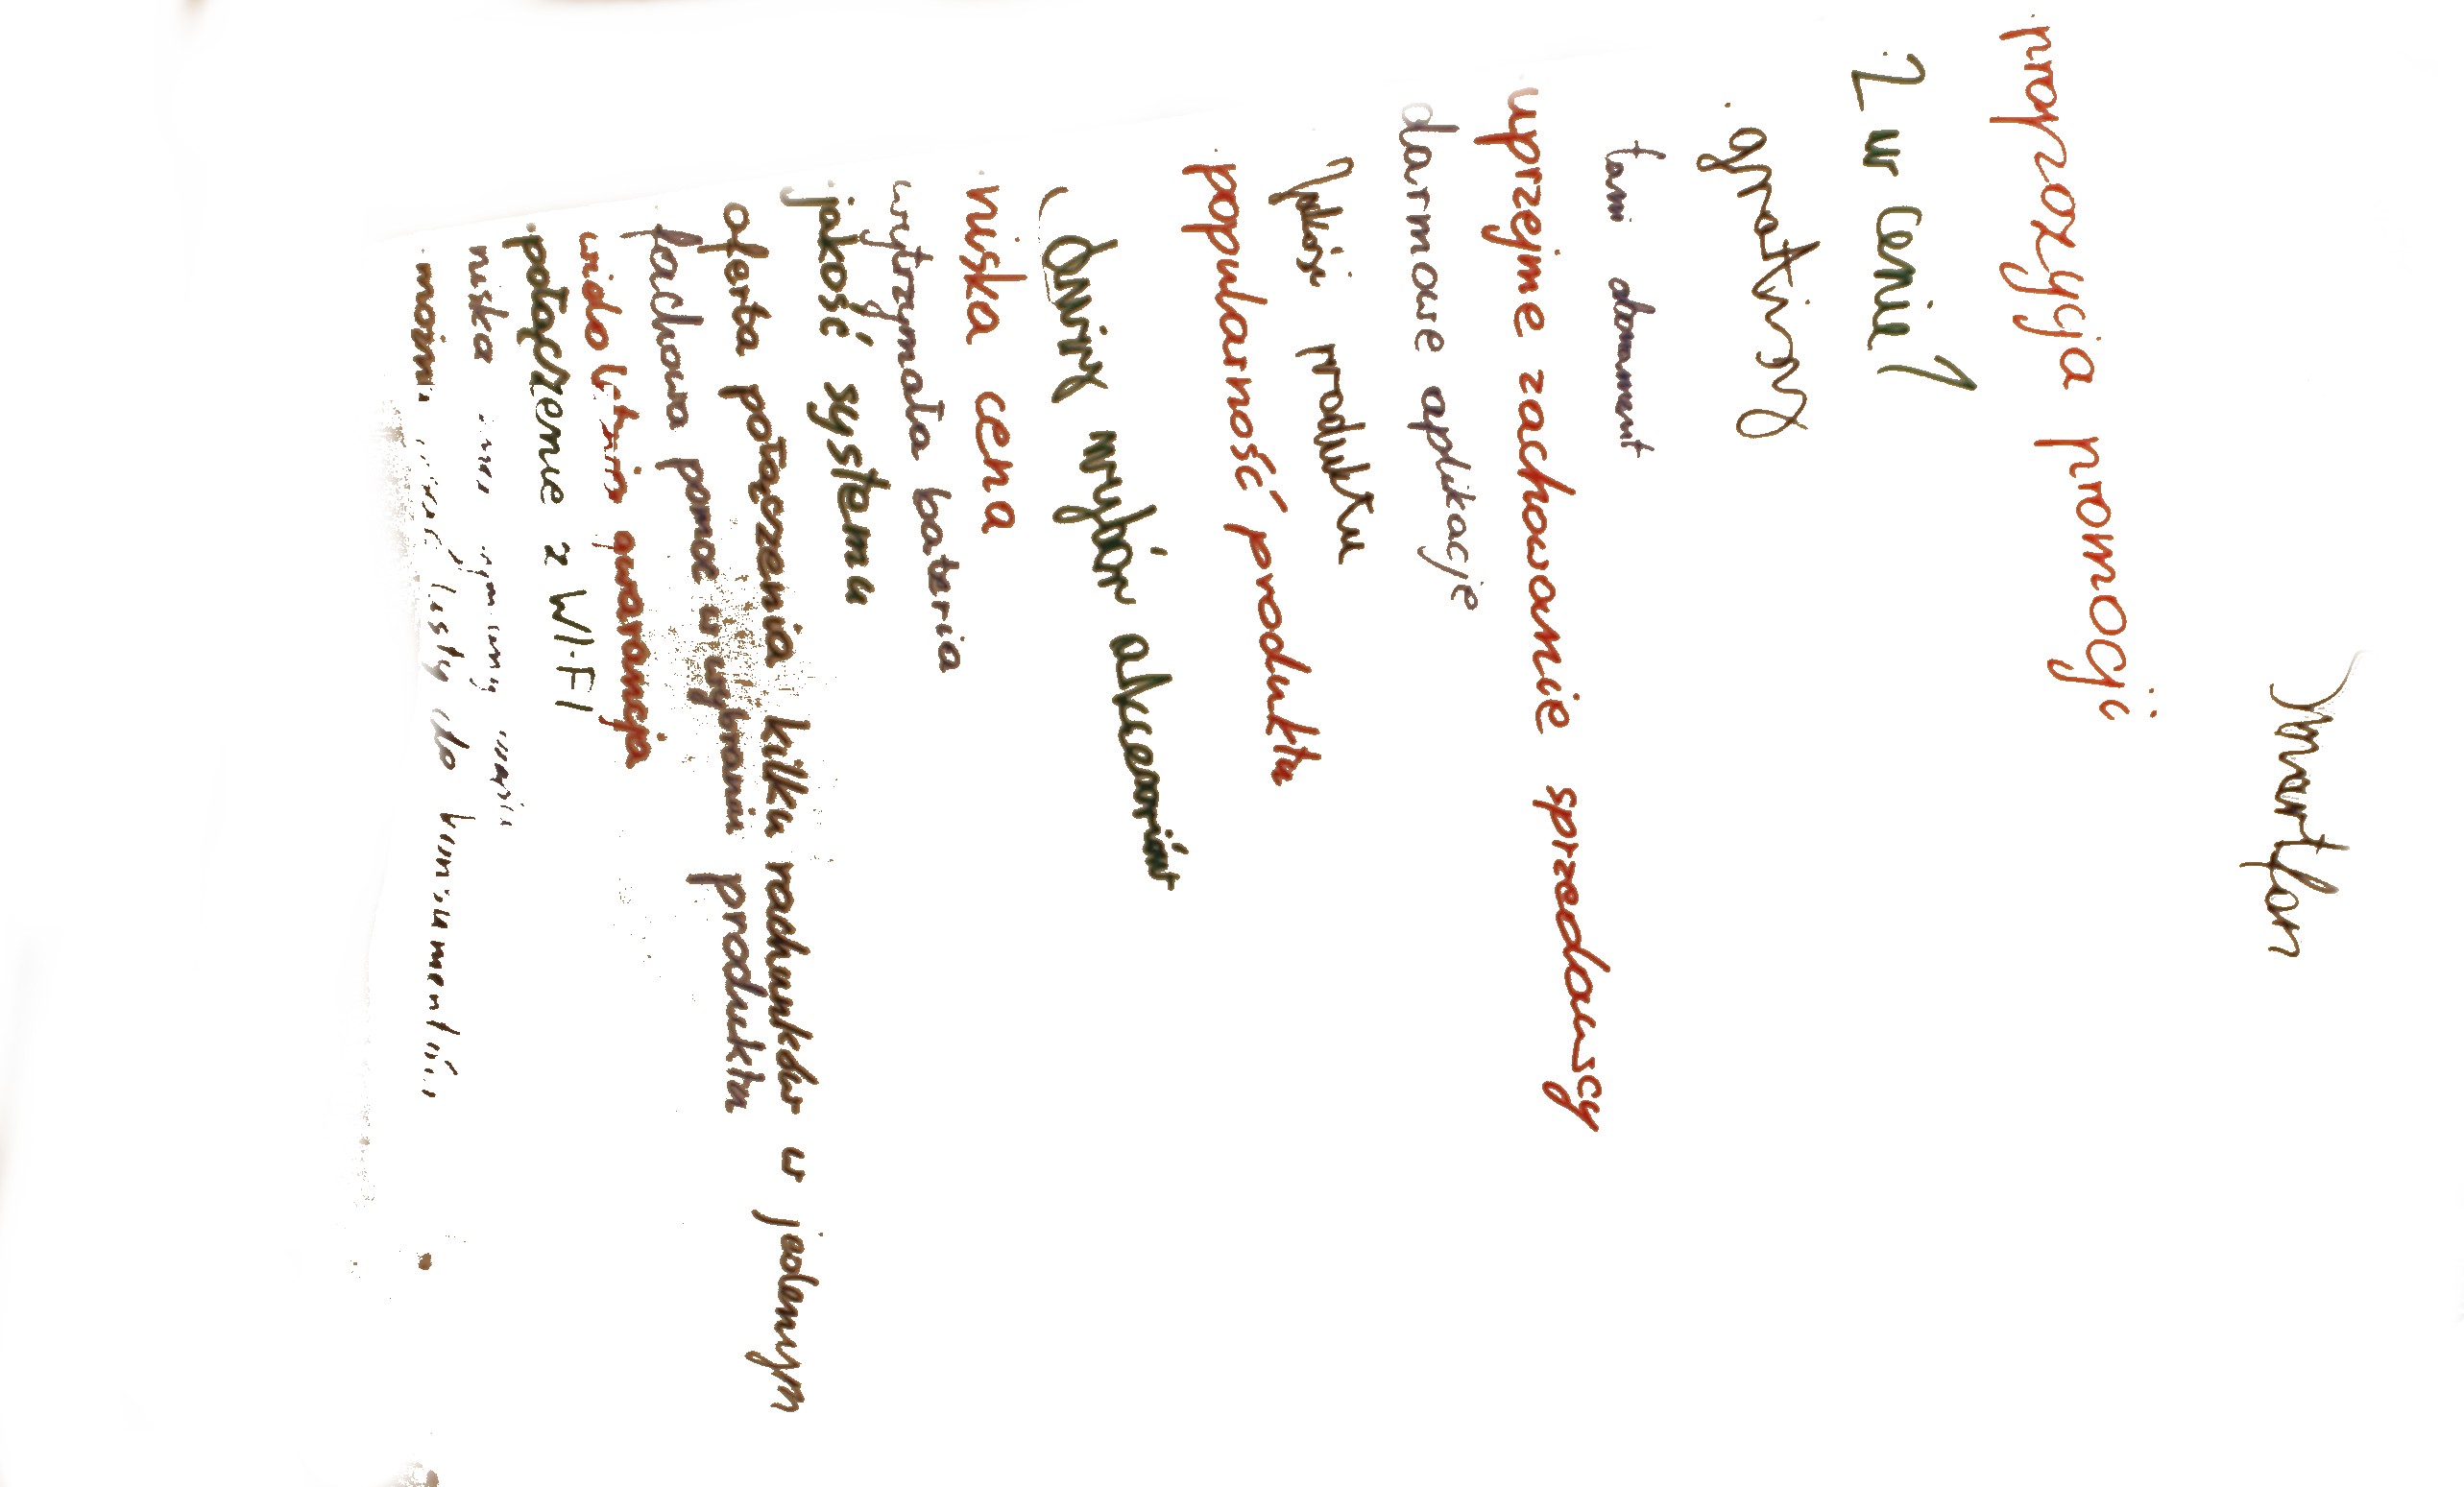 Smartfon
propozycja promocji
2 w cenie 1
gratisy
tani abonament
uprzejme zachowanie sprzedawcy
darmowe aplikacje
jakość produktu
popularność produktu
wybór akcesoriów
niska cena
wytrzymała bateria
jakość systemu
oferta połączenia kilku rachunków w jednym
fachowa pomoc w wybraniu produktu
gwarancja
połączenie z WI-FI
niska
listy do